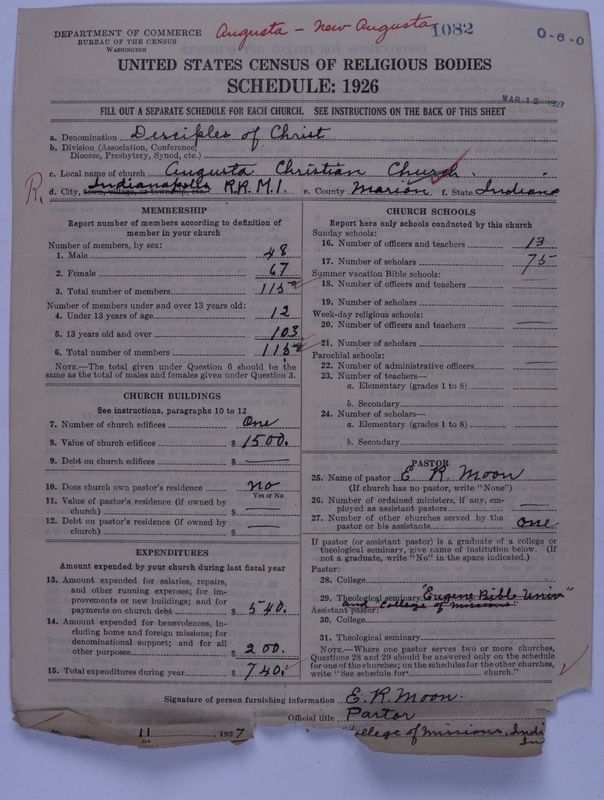 Augusta - New Augusta
1082
0-6-0
DEPARTMENT OF COMMERCE
BUREAU OF THE CENSUS
WASHINGTON
UNITED STATES CENSUS OF RELIGIOUS BODIES
SCHEDULE: 1926
MAR 12 1927
FILL OUT A SEPARATE SCHEDULE FOR EACH CHURCH. SEE INSTRUCTIONS ON THE BACK OF THIS SHEET
a. Denomination Disciples of Christ
b. Division (Association, Conference, Diocese, Presbytery, Synod, etc.)
c. Local name of church Augusta Christian Church.
R. d. City, town, village, or township, etc. Indianapolis R.R.M.1. e. County Marion f. State Indiana
MEMBERSHIP
Report number of members according to definition of
member in your church
Number of members, by sex:
1. Male 48
2. Female 67
3. Total number of members 115
Number of members under and over 13 years old:
4. Under 13 years of age 12
5. 13 years old and over 103
6. Total number of members 115
NOTE.—The total given under Question 6 should be the
same as the total of males and females given under Question 3.
CHURCH BUILDINGS
See instructions, paragraphs 10 to 12
7. Number of church edifices One
8. Value of church edifices $ 1500.
9. Debt on church edifices $ —
10. Does church own pastor's residence no
Yes or No
11. Value of pastor's residence (if owned by
church) $ —
12. Debt on pastor's residence (if owned by
church) $ —
EXPENDITURES
Amount expended by your church during last fiscal year
13. Amount expended for salaries, repairs,
and other running expenses; for im-
provements or new buildings; and for
payments on church debt $ 540.
14. Amount expended for benevolences, in-
cluding home and foreign missions; for
denominational support; and for all
other purposes $ 200.
15. Total expenditures during year $ 740.
CHURCH SCHOOLS
Report here only schools conducted by this church
Sunday schools:
16. Number of officers and teachers 13
17. Number of scholars 75
Summer vacation Bible schools:
18. Number of officers and teachers —
19. Number of scholars
Week-day religious schools:
20. Number of officers and teachers —
21. Number of scholars —
Parochial schools:
22. Number of administrative officers —
23. Number of teachers—
a. Elementary (grades 1 to 8)
b. Secondary
24. Number of scholars—
a. Elementary (grades 1 to 8) —
b. Secondary
PASTOR
25. Name of pastor E. R. Moon
(If church has no pastor, write "None")
26. Number of ordained ministers, if any, em-
ployed as assistant pastors —
27. Number of other churches served by the
pastor or his assistants one
If pastor (or assistant pastor) is a graduate of a college or
theological seminary, give name of institution below. (If
not a graduate, write "No" in the space indicated.)
Pastor:
28. College
29. Theological seminary "Eugene Bible Univ"
Assistant pastor: and College of Missions"
30. College
31. Theological seminary
NOTE.—Where one pastor serves two or more churches,
Questions 28 and 29 should be answered only on the schedule
for one of the churches; on the schedules for the other churches,
write "See schedule for church."
Signature of person furnishing information E. R. Moon.
Official title Pastor
11 1927 College of Missions, Indi
In